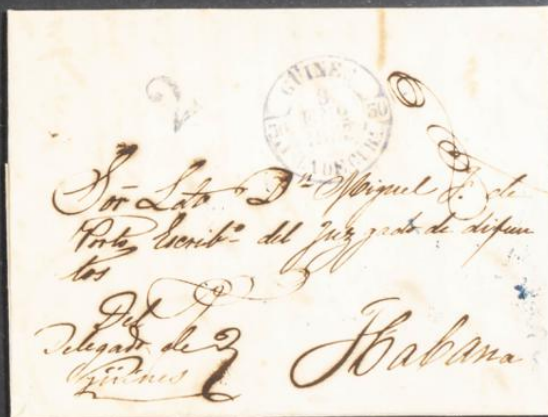 2
GÜINE
Sor. Ldo. Dn. Miguel de
Porto Escribo. del Juzgado de difun
tos
Del
Delegado de
Güines
Habana